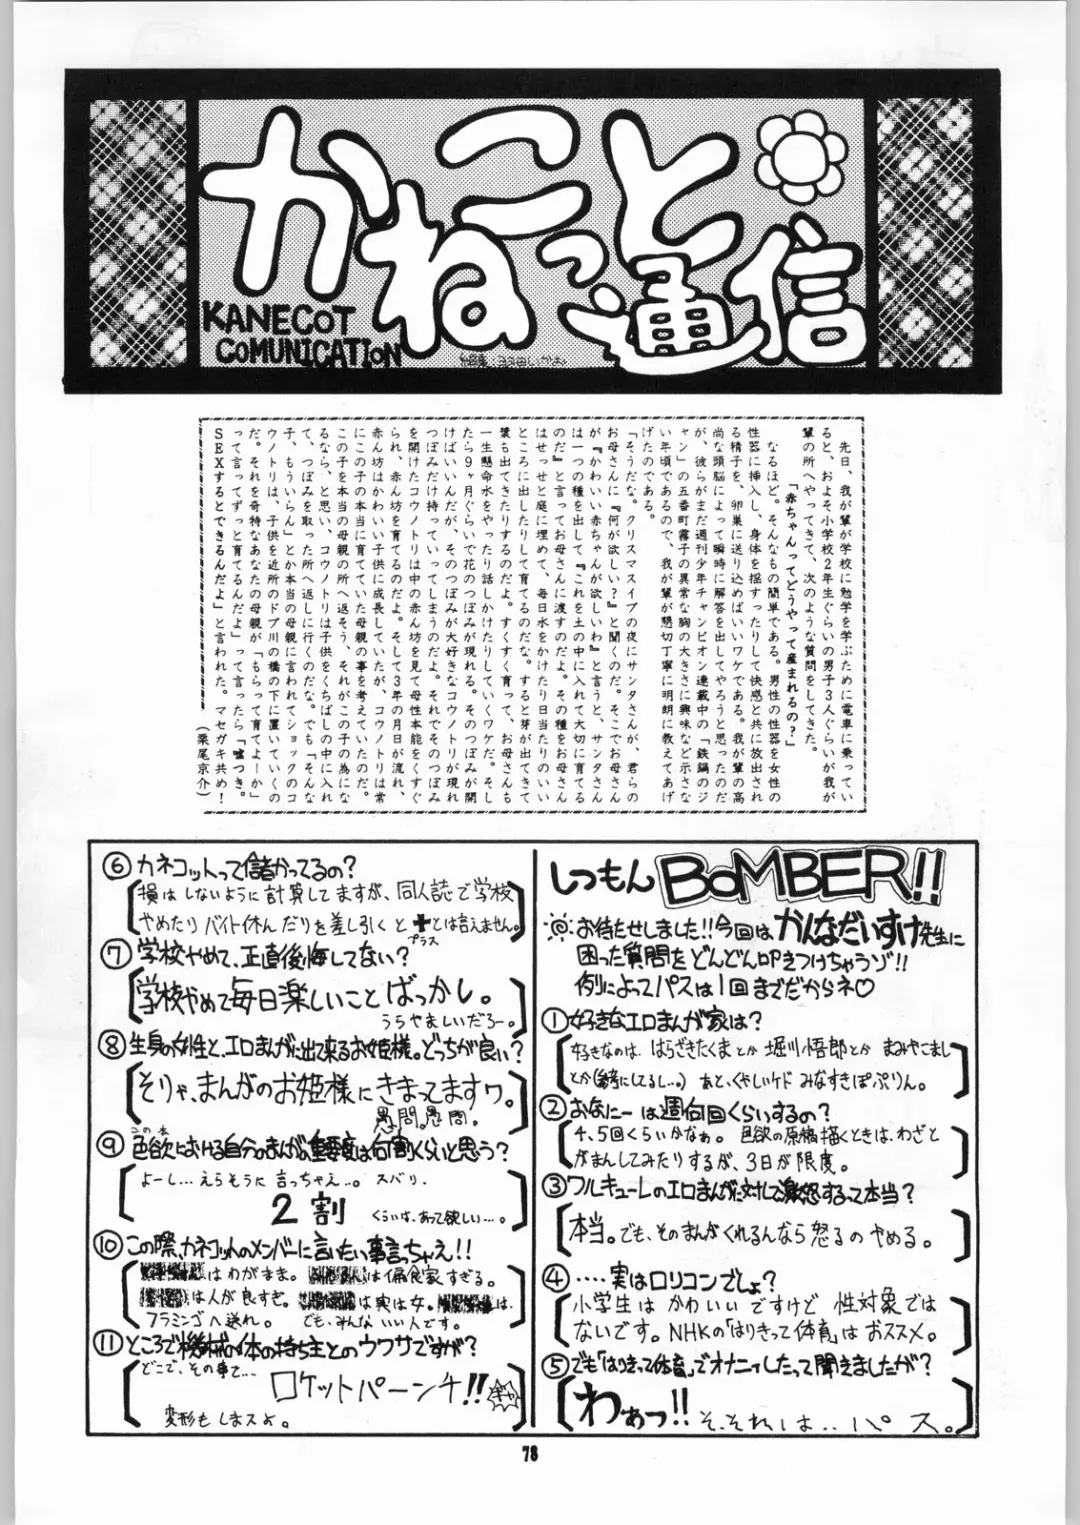 かねこっと通信
KANECOT
COMUNICATION
先日、我が輩が学校に勉学を学ぶために電車に乗ってい
ると、およそ小学校2年生ぐらいの男子3人ぐらいが我が
輩の所へやってきて、次のような質問をしてきた。
「赤ちゃんってどうやって産まれるの?」
なるほど。そんなもの簡単である。男性の性器を女性の
性器に挿入し、身体を揺すったりして快感と共に放出され
る精子を、卵巣に送り込めばいいワケである。我が輩の高
尚な頭脳によって瞬時に解答を出してやろうと思ったのだ
が、彼らがまだ週刊少年チャンピオン連載中の「鉄鍋のジ
ャン」の五番町霧子の異常な胸の大きさに興味など示さな
い年頃であるので、我が輩が懇切丁寧に明朗に教えてあげ
げたのである。
「そうだな。クリスマスイブの夜にサンタさんが、君らの
お母さんに『何が欲しい?』と聞くのだ。そこでお母さん
が『かわいい赤ちゃんが欲しいわ』と言うと、サンタさん
は一つの種を出して『これを土の中に入れて大切に育てる
のだ』と言ってお母さんに渡すのだよ。その種をお母さん
はせっせと庭に埋めて、毎日水をかけたり日当たりのいい
ところに出したりして育てるのだな。すると芽が出てきて
葉も出てきたりするのだよ。すくすく育って、お母さんも
一生懸命水をやったり話しかけたりしていくワケだ。そし
たら9ヶ月ぐらいで花のつぼみが現れる。そのつぼみが開
けばいいんだが、そのつぼみが大好きなコウノトリが現れ
つぼみだけ持っていってしまうのだよ。それでそのつぼみ
を開けたコウノトリは中の赤ん坊を見て母性本能をくすぐ
られ、赤ん坊を育てるのだよ。そして3年の月日が流れ、
赤ん坊はかわいい子供に成長していたが、コウノトリは常
にこの子の本当に育てていた母親の事を考えていたのだ。
この子を本当の母親の所へ返そう、それがこの子の為にな
るなら、と思い、コウノトリは子供をくちばしの中に入れ
て、つぼみを取った所へ返しに行くのだな。でも「そんな
子、もういらん」とか本当の母親に言われてショックのコ
ウノトリは、子供を近所のドブ川の橋の下に置いていくの
だ。それを奇特なあなたの母親が「もらって育てよーか」
って言ってずっと育てるんだよ」って言ったら「嘘つき。
SEXするとできるんだよ」と言われた。マセガキ共め!
(栗尾京介)
しつもんBoMBER!!
お待たせしました!!今回は、かんなだいすけ先生に
困った質問をどんどん叩きつけちゃうゾ!!
例によってパスは1回までだからネ♡
①好きなエロまんが家は?
好きなのは、はらざきたくまとか 堀川悟郎とか まみやこまし
とか(参考にしてるし…。) あと、くやしいケド みなすきぽぷりん。
②おなにーは週何回くらいするの?
4、5回くらいかなぁ。 色欲の原稿描くときは、わざと
がまんしてみたりするが、3日が限度。
③ワルキューレのエロまんがに対して激怒するって本当?
本当。でも、そのまんがくれるんなら怒るのやめる。
④……実はロリコンでしょ?
小学生は かわいいですけど 性対象では
ないです。NHKの「はりきって体育」はおススメ。
⑤でも「はりきって体育」でオナニィしたって聞えましたが?
わぁっ!! そ、それは… パス。
⑥カネコットって儲かってるの?
損はしないように計算してますが、同人誌で学校
やめたり バイト休んだりを差し引くと+とは言えません。
プラス
⑦学校やめて、正直後悔してない?
学校やめて毎日楽しいことばっかし。
うらやましいだろー。
⑧生身の女性と、エロまんがに出て来るお姫様。どっちが良い?
そりゃ、まんがのお姫様にきまってますワ。
愚問。愚問。
この本
⑨色欲における自分のまんがの重要度は何割くらいと思う?
よーし…えらそうに言っちゃえ…。ズバリ、
2割 くらいは、あって欲しい…。
⑩この際、カネコットのメンバーに言いたい事言っちゃえ!!
はわがまま。 は偏食家すぎる。
は人が良すぎ。 は実は女。 は、
フラミンゴへ送れ。 でも、みんないい人です。
⑪ところで機械の体の持ち主とのウワサですが?
どこで、その事を…
ロケットパーンチ!!
変形もしまスよ。
78